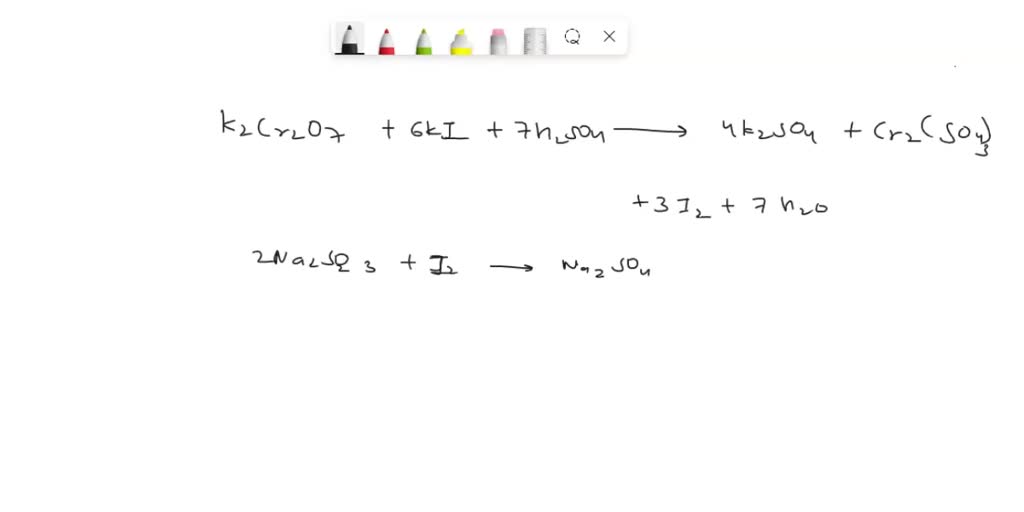 K2Cr2O7 + 6KI + 7H2SO4 → 4K2SO4 + Cr2(SO4)3
+ 3I2 + 7H2O
2Na2SO3 + I2 → Na2SO4